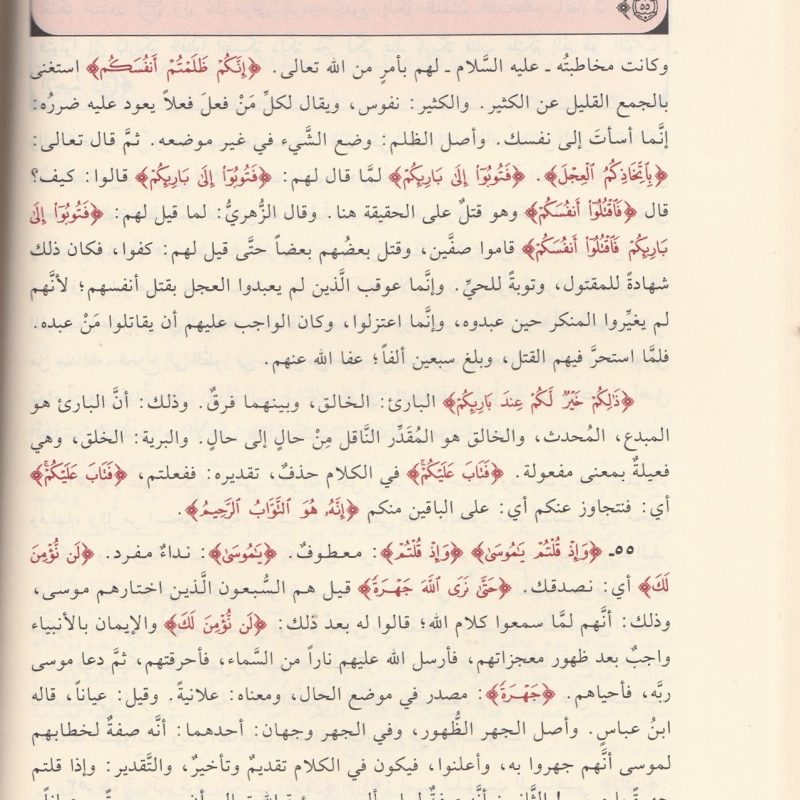 ٥٥
وكانت مخاطبتُه ـ عليه السَّلام ـ لهم بأمرٍ من الله تعالى. ﴿إِنَّكُمْ ظَلَمْتُمْ أَنفُسَكُم﴾ استغنى
بالجمع القليل عن الكثير. والكثير: نفوس، ويقال لكلِّ مَنْ فعلَ فعلاً يعود عليه ضررُه:
إنَّما أسأتَ إلى نفسك. وأصل الظلم: وضع الشَّيء في غير موضعه. ثمَّ قال تعالى:
﴿بِاتِّخَاذِكُمُ الْعِجْلَ﴾. ﴿فَتُوبُوٓا۟ إِلَىٰ بَارِئِكُمْ﴾ لمَّا قال لهم: ﴿فَتُوبُوٓا۟ إِلَىٰ بَارِئِكُمْ﴾ قالوا: كيف؟
قال ﴿فَاقْتُلُوٓا۟ أَنفُسَكُمْ﴾ وهو قتلٌ على الحقيقة هنا. وقال الزُّهريُّ: لما قيل لهم: ﴿فَتُوبُوٓا۟ إِلَىٰ
بَارِئِكُمْ فَاقْتُلُوٓا۟ أَنفُسَكُمْ﴾ قاموا صفَّين، وقتل بعضُهم بعضاً حتَّى قيل لهم: كفوا، فكان ذلك
شهادةً للمقتول، وتوبةً للحيِّ. وإنَّما عوقب الَّذين لم يعبدوا العجل بقتل أنفسهم؛ لأنَّهم
لم يغيِّروا المنكر حين عبدوه، وإنَّما اعتزلوا، وكان الواجب عليهم أن يقاتلوا مَنْ عبده.
فلمَّا استحرَّ فيهم القتل، وبلغ سبعين ألفاً؛ عفا الله عنهم.
﴿ذَٰلِكُمْ خَيْرٌ لَّكُمْ عِندَ بَارِئِكُمْ﴾ البارئ: الخالق، وبينهما فرقٌ. وذلك: أنَّ البارئ هو
المبدع، المُحدث، والخالق هو المُقدِّر النَّاقل مِنْ حالٍ إلى حالٍ. والبرية: الخلق، وهي
فعيلةٌ بمعنى مفعولة. ﴿فَتَابَ عَلَيْكُمْ﴾ في الكلام حذفٌ، تقديره: ففعلتم، ﴿فَتَابَ عَلَيْكُمْ﴾
أي: فتتجاوز عنكم أي: على الباقين منكم ﴿إِنَّهُۥ هُوَ التَّوَّابُ الرَّحِيمُ﴾.
٥٥ـ ﴿وَإِذْ قُلْتُمْ يَٰمُوسَىٰ﴾ ﴿وَإِذْ قُلْتُمْ﴾: معطوفٌ. ﴿يَٰمُوسَىٰ﴾: نداءٌ مفرد. ﴿لَن نُّؤْمِنَ
لَكَ﴾ أي: نصدقك. ﴿حَتَّىٰ نَرَى اللَّهَ جَهْرَةً﴾ قيل هم السُّبعون الَّذين اختارهم موسى،
وذلك: أنَّهم لمَّا سمعوا كلام الله؛ قالوا له بعد ذلك: ﴿لَن نُّؤْمِنَ لَكَ﴾ والإيمان بالأنبياء
واجبٌ بعد ظهور معجزاتهم، فأرسل الله عليهم ناراً من السَّماء، فأحرقتهم، ثمَّ دعا موسى
ربَّه، فأحياهم. ﴿جَهْرَةً﴾: مصدر في موضع الحال، ومعناه: علانيةً. وقيل: عياناً، قاله
ابنُ عباس. وأصل الجهر الظُّهور، وفي الجهر وجهان: أحدهما: أنَّه صفةٌ لخطابهم
لموسى أنَّهم جهروا به، وأعلنوا، فيكون في الكلام تقديمٌ وتأخيرٌ، والتَّقدير: وإذا قلتم